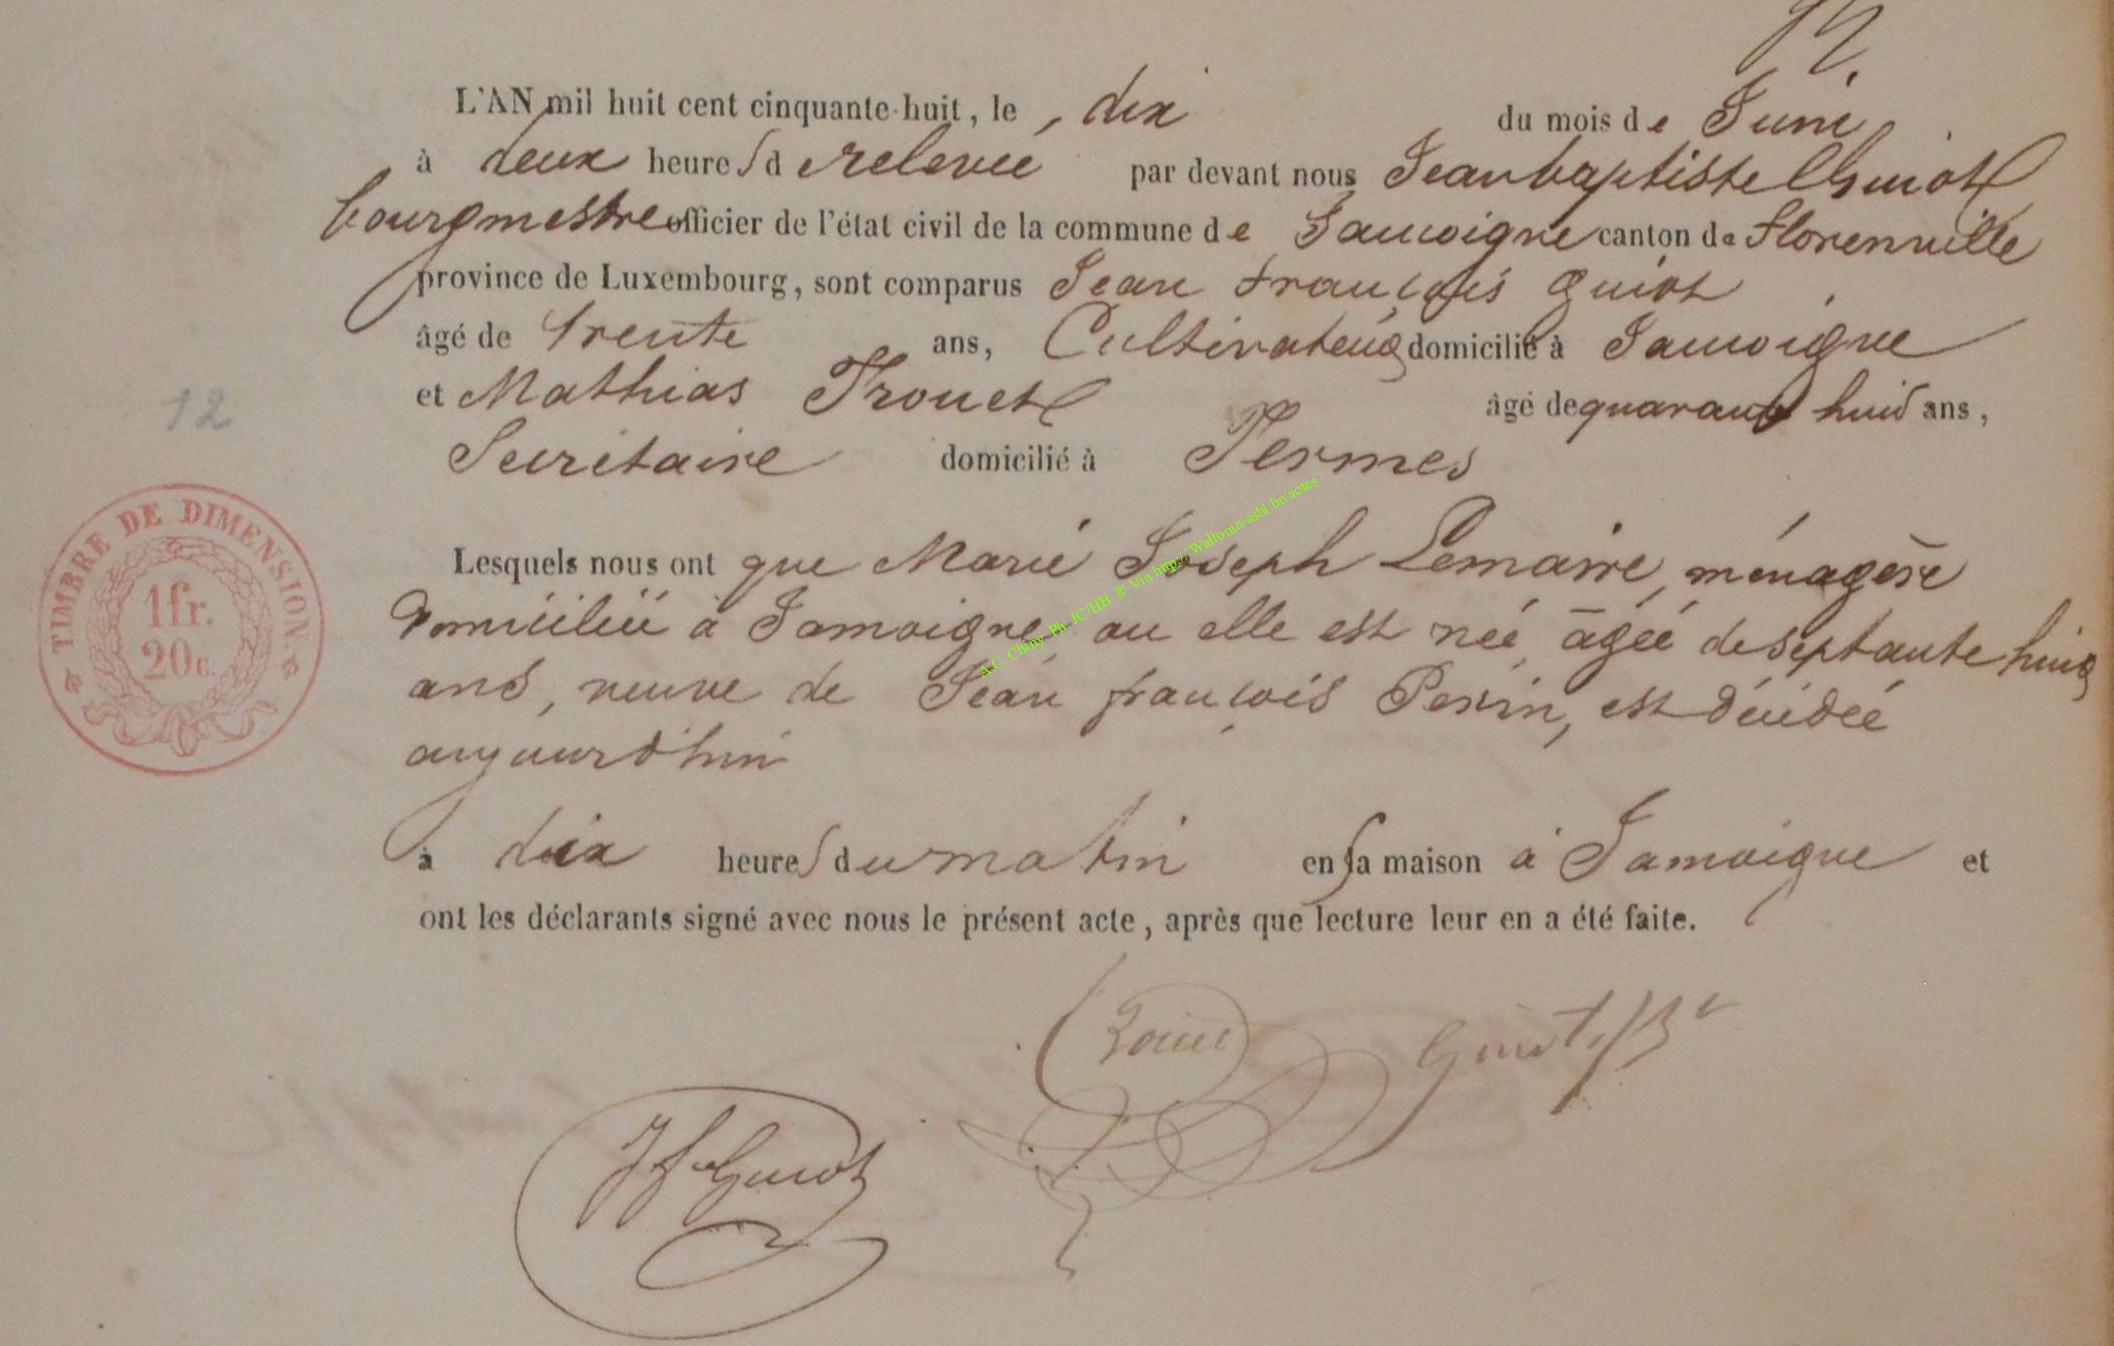 L'AN mil huit cent cinquante-huit, le dix du mois de Juin
à deux heures de relevée par devant nous Jean baptiste Guiot
bourgmestre officier de l'état civil de la commune de Jamoigne canton de Florenville
province de Luxembourg, sont comparus Jean françois Guiot
âgé de trente ans, Cultivateur domicilié à Jamoigne
et Mathias Trouet âgé de quarante huit ans,
12
Secrétaire domicilié à Termes
Lesquels nous ont que Marie Joseph Lemaire, ménagère
domiciliée à Jamoigne ou elle est née, âgée de septante huit
ans, veuve de Jean françois Perin, est décédée
aujourd'hui
à dix heures du matin en sa maison à Jamoigne et
ont les déclarants signé avec nous le présent acte, après que lecture leur en a été faite.
TIMBRE DE DIMENSION.
1fr.
20c.
A.C. Chiny Ph. JC/HB ® Via http://Wallonia-asbl.be/actes
Guiot, Bre
JfGuiot